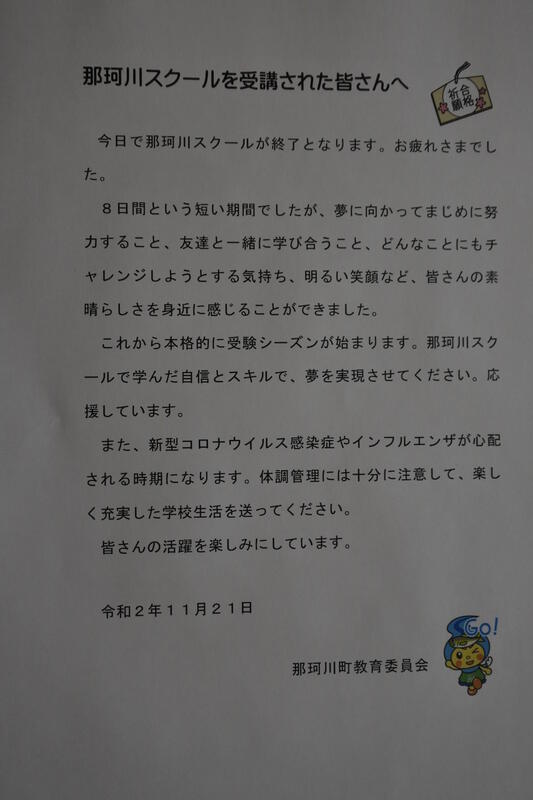 那珂川スクールを受講された皆さんへ
祈合
願格
今日で那珂川スクールが終了となります。お疲れさまでし
た。
８日間という短い期間でしたが、夢に向かってまじめに努
力すること、友達と一緒に学び合うこと、どんなことにもチ
ャレンジしようとする気持ち、明るい笑顔など、皆さんの素
晴らしさを身近に感じることができました。
これから本格的に受験シーズンが始まります。那珂川スク
ールで学んだ自信とスキルで、夢を実現させてください。応
援しています。
また、新型コロナウイルス感染症やインフルエンザが心配
される時期になります。体調管理には十分に注意して、楽し
く充実した学校生活を送ってください。
皆さんの活躍を楽しみにしています。
令和２年１１月２１日
GO!
那珂川町教育委員会